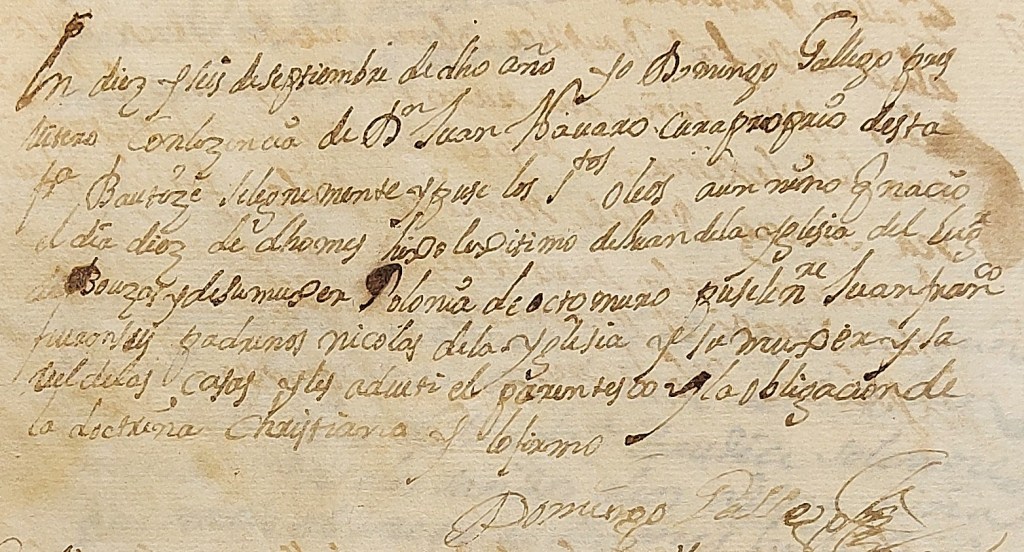 En diez y seis de septiembre de dho año yo Domingo Gallego pres
vitero con lizencia de Dn Juan Navaro cura proprio desta
fa Bautize solegnemente y puse los Stos oleos a un nino q nacio
el dia diez de dho mes hijo lexitimo de Juan de la Yglesia del lugr
de Bouzas y de su muxer Polonia de octo muro pusele nre Juan franco
fueron sus padrinos nicolas de la yglesia y su muxer y Isa
vel de las Casas y les adverti el parentesco y la obligacion de
la doctrina Christiana y lo firmo
Domingo Gallego